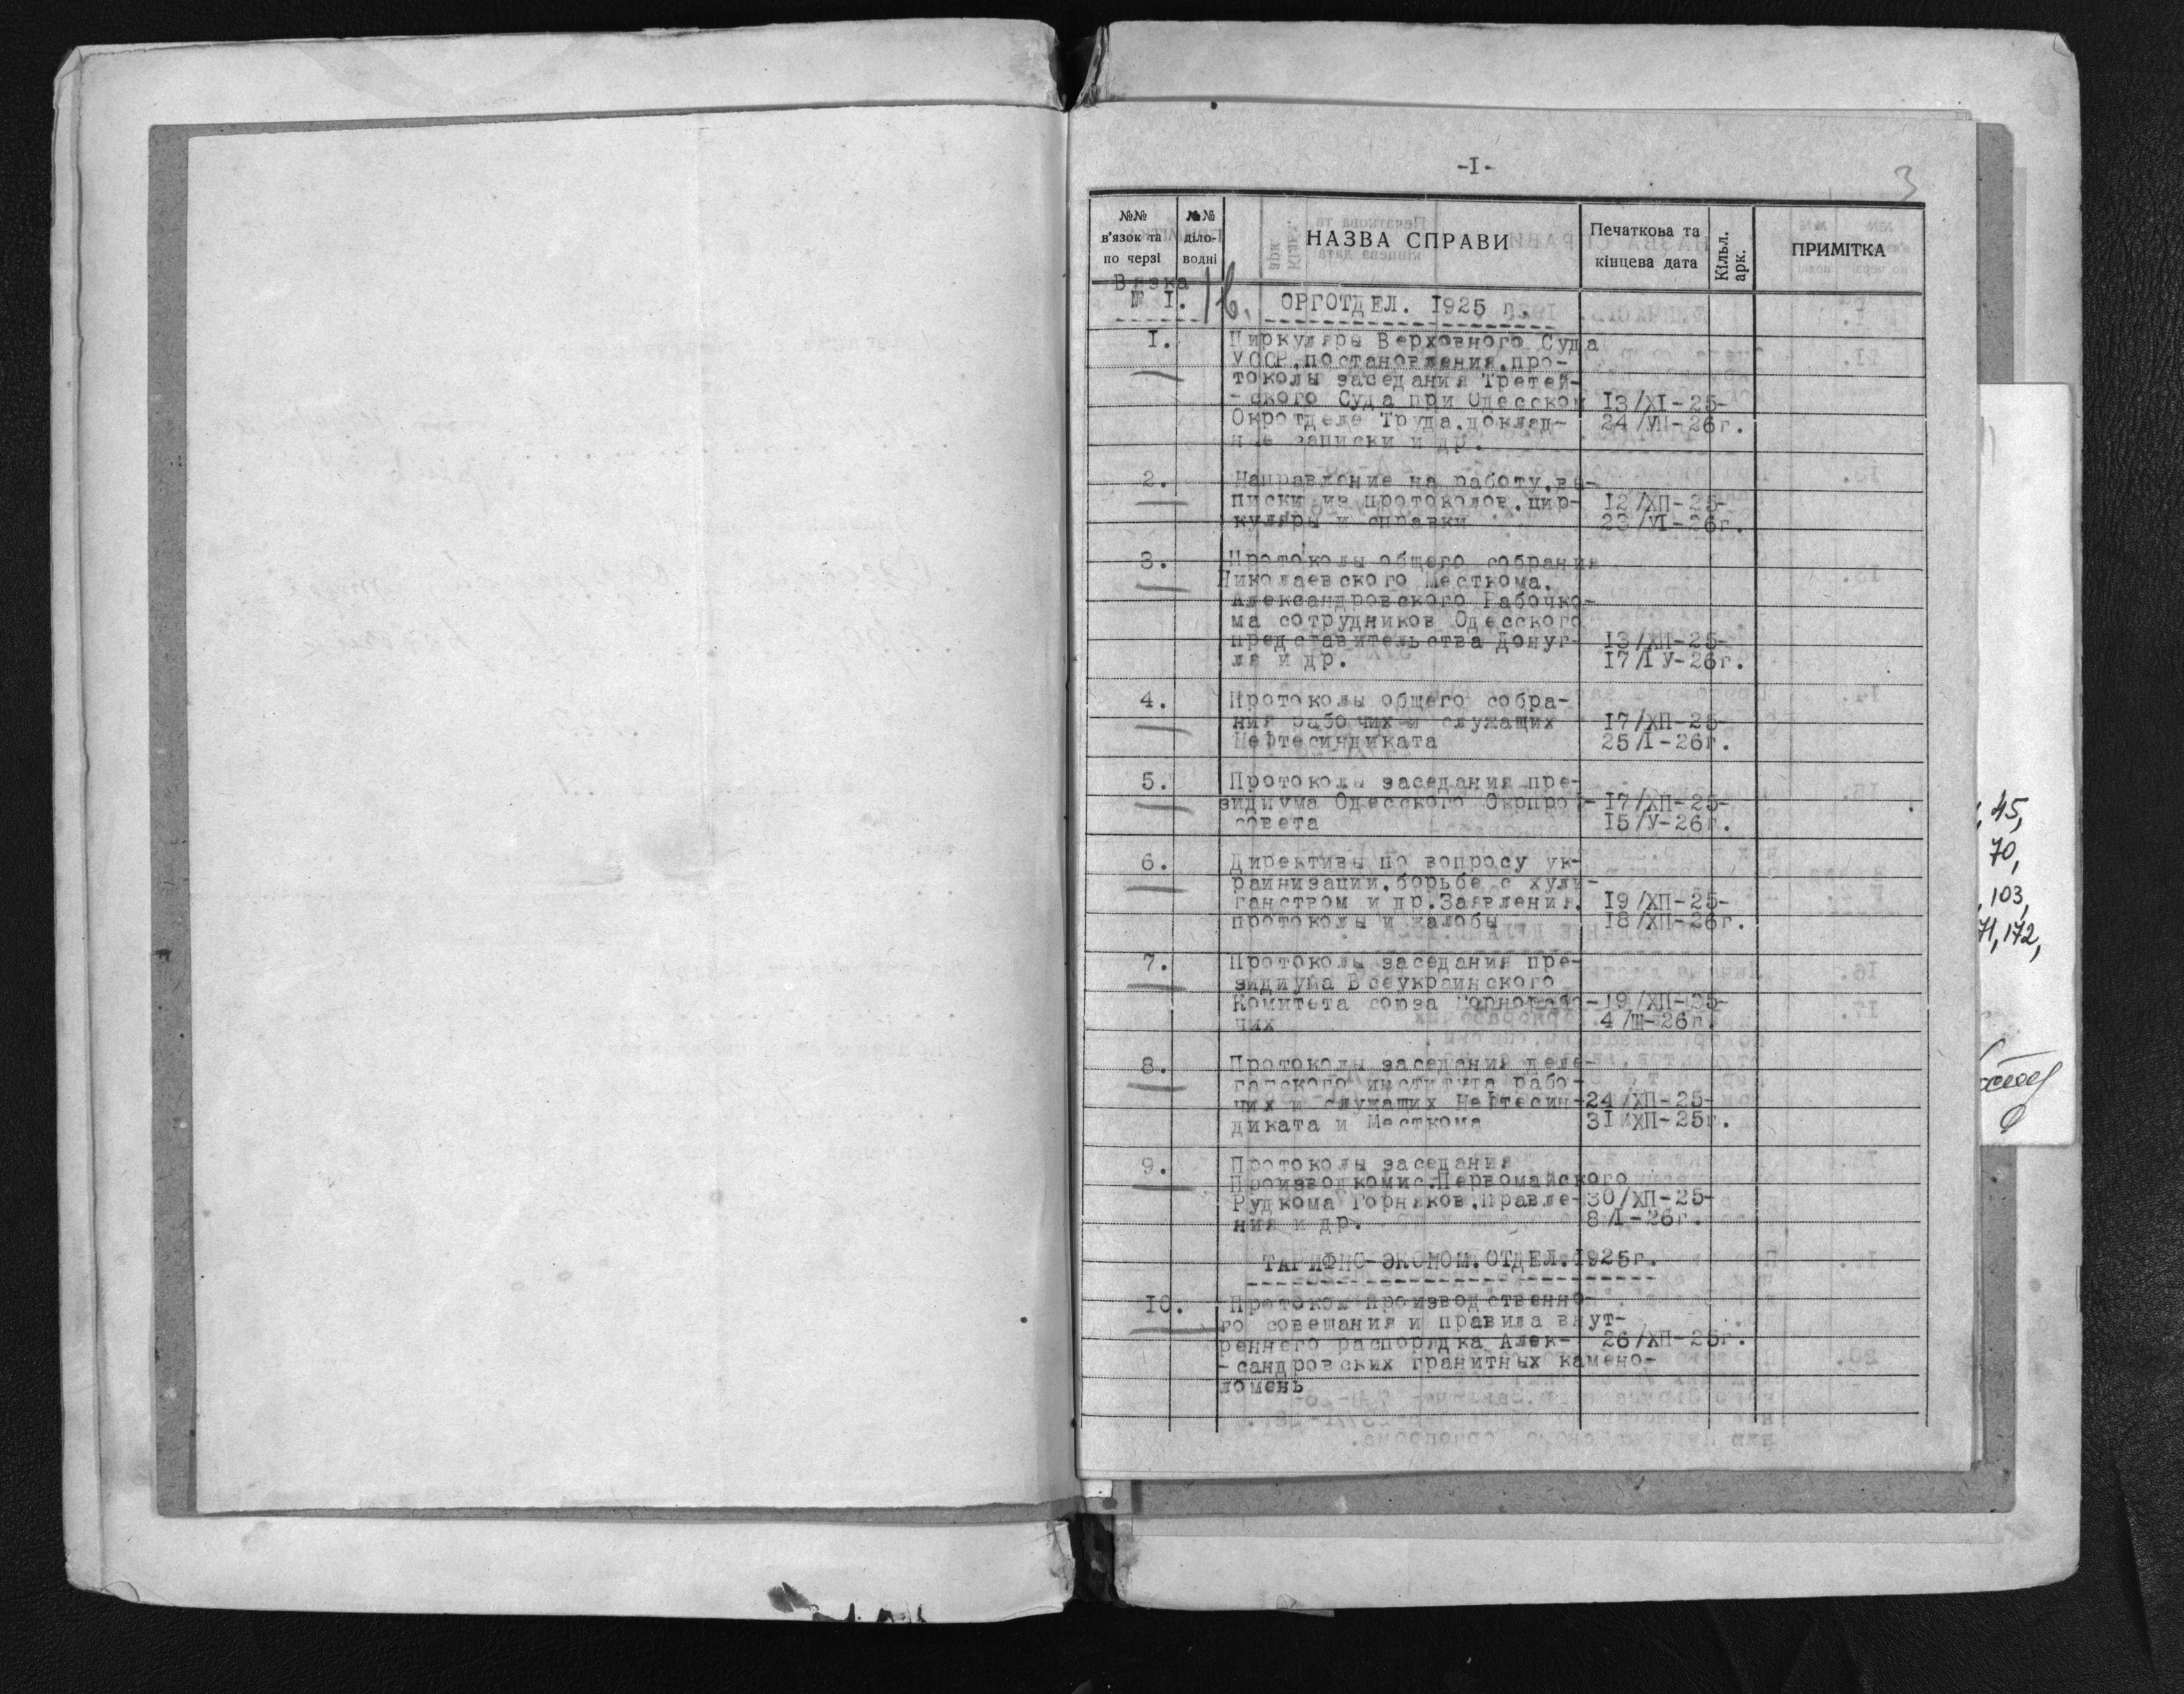 -I-
3
№№ в'язок та по черзі
№№ діло-водні
НАЗВА СПРАВИ
Печаткова та кінцева дата
Кільк. арк.
ПРИМІТКА
Вязка
№ I.
ОРГОТДЕЛ. I925 г.
I.
Циркуляры Верховного Суда
УССР,постановления,про-
токолы заседания Третей-
-ского Суда при Одесском I3/XI-25-
Окротделе Труда,доклад- 24/УП-26г.
ные записки и др.
2. Направление на работу,вы-
писки из протоколов,цир- I2/ХП-25-
куляры и справки 23/УI-26г.
3. Протоколы общего собрания
Николаевского Месткома,
Александровского Рабочко-
ма сотрудников Одесского
представительства Донуг- I3/ХП-25-
ля и др. I7/IУ-26г.
4. Протоколы общего собра-
ния рабочих и служащих I7/ХП-25-
Нефтесиндиката 25/I-26г.
5. Протоколы заседания пре-
зидиума Одесского Окрпроф- I7/ХП-25-
совета I5/У-26г.
6. Директивы по вопросу ук-
раинизации,борьбе с хули-
ганством и др.Заявления, I9/ХП-25-
протоколы и жалобы I8/ХП-26г.
7. Протоколы заседания пре-
зидиума Всеукраинского
Комитета союза Горнорабо- I9/ХП-25-
чих 4/Ш-26г.
8. Протоколы заседания деле-
гатского института рабо-
чих и служащих Нефтесин- 24/ХП-25-
диката и Месткома 3I/ХП-25г.
9. Протоколы заседания
Производкомис.Первомайского
Рудкома Горняков,Правле- 30/ХП-25-
ния и др. 8/I-26г.
ТАРИФНО-ЭКОНОМ.ОТДЕЛ.I925г.
I0. Протокол производственно-
го совещания и правила внут-
реннего распорядка Алек- 26/ХП-25г.
-сандровских гранитных камено-
ломень
45,
70,
103,
71, 172,